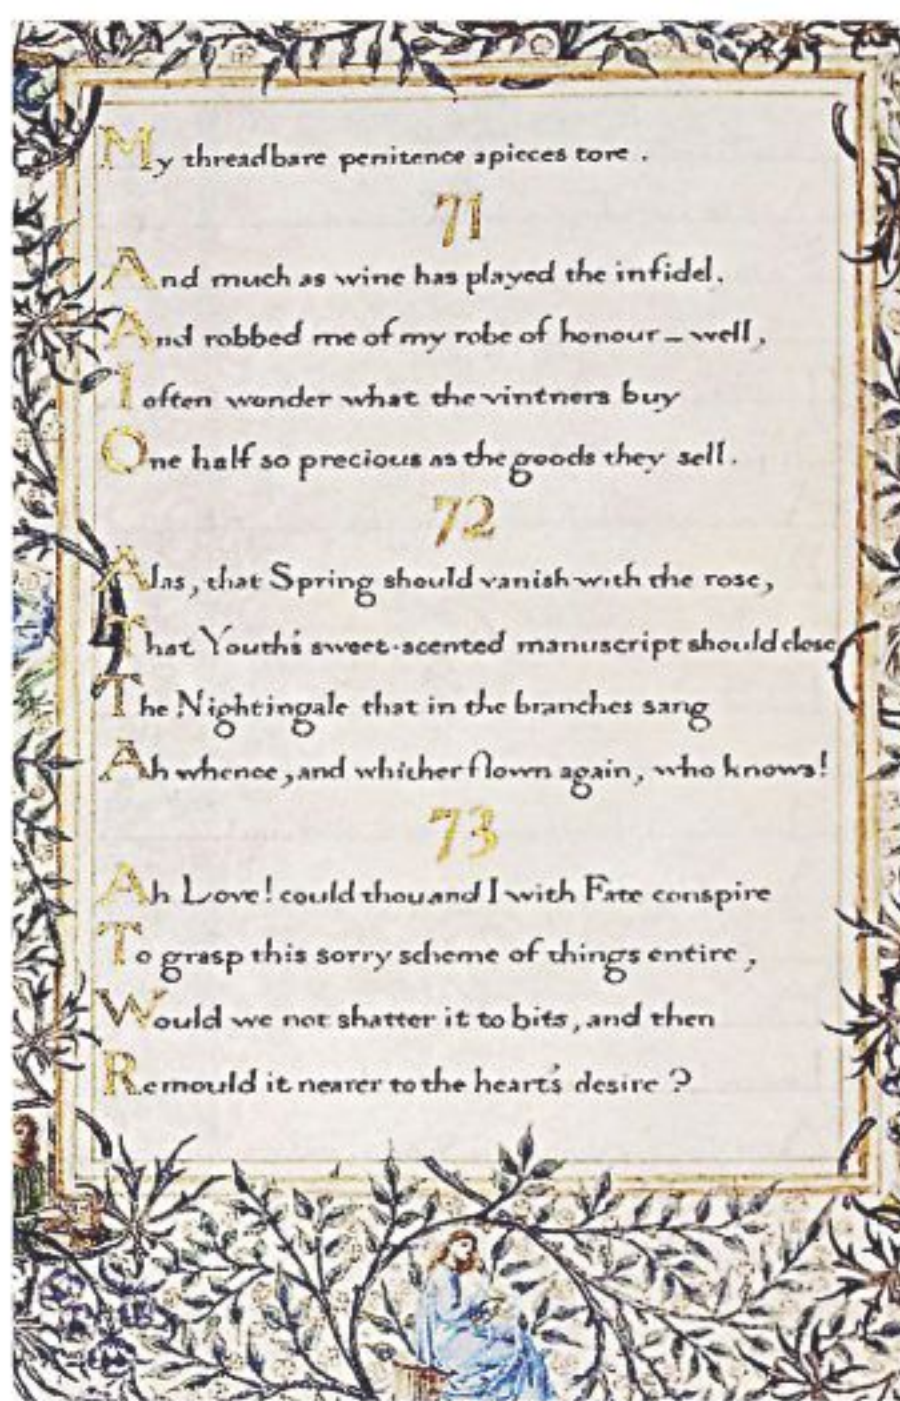 My threadbare penitence apieces tore .
71
And much as wine has played the infidel.
And robbed me of my robe of honour — well,
I often wonder what the vintners buy
One half so precious as the goods they sell.
72
Alas, that Spring should vanish with the rose,
That Youth's sweet-scented manuscript should close
The Nightingale that in the branches sang
Ah whence, and whither flown again, who knows!
73
Ah Love! could thou and I with Fate conspire
To grasp this sorry scheme of things entire,
Would we not shatter it to bits, and then
Remould it nearer to the heart's desire ?